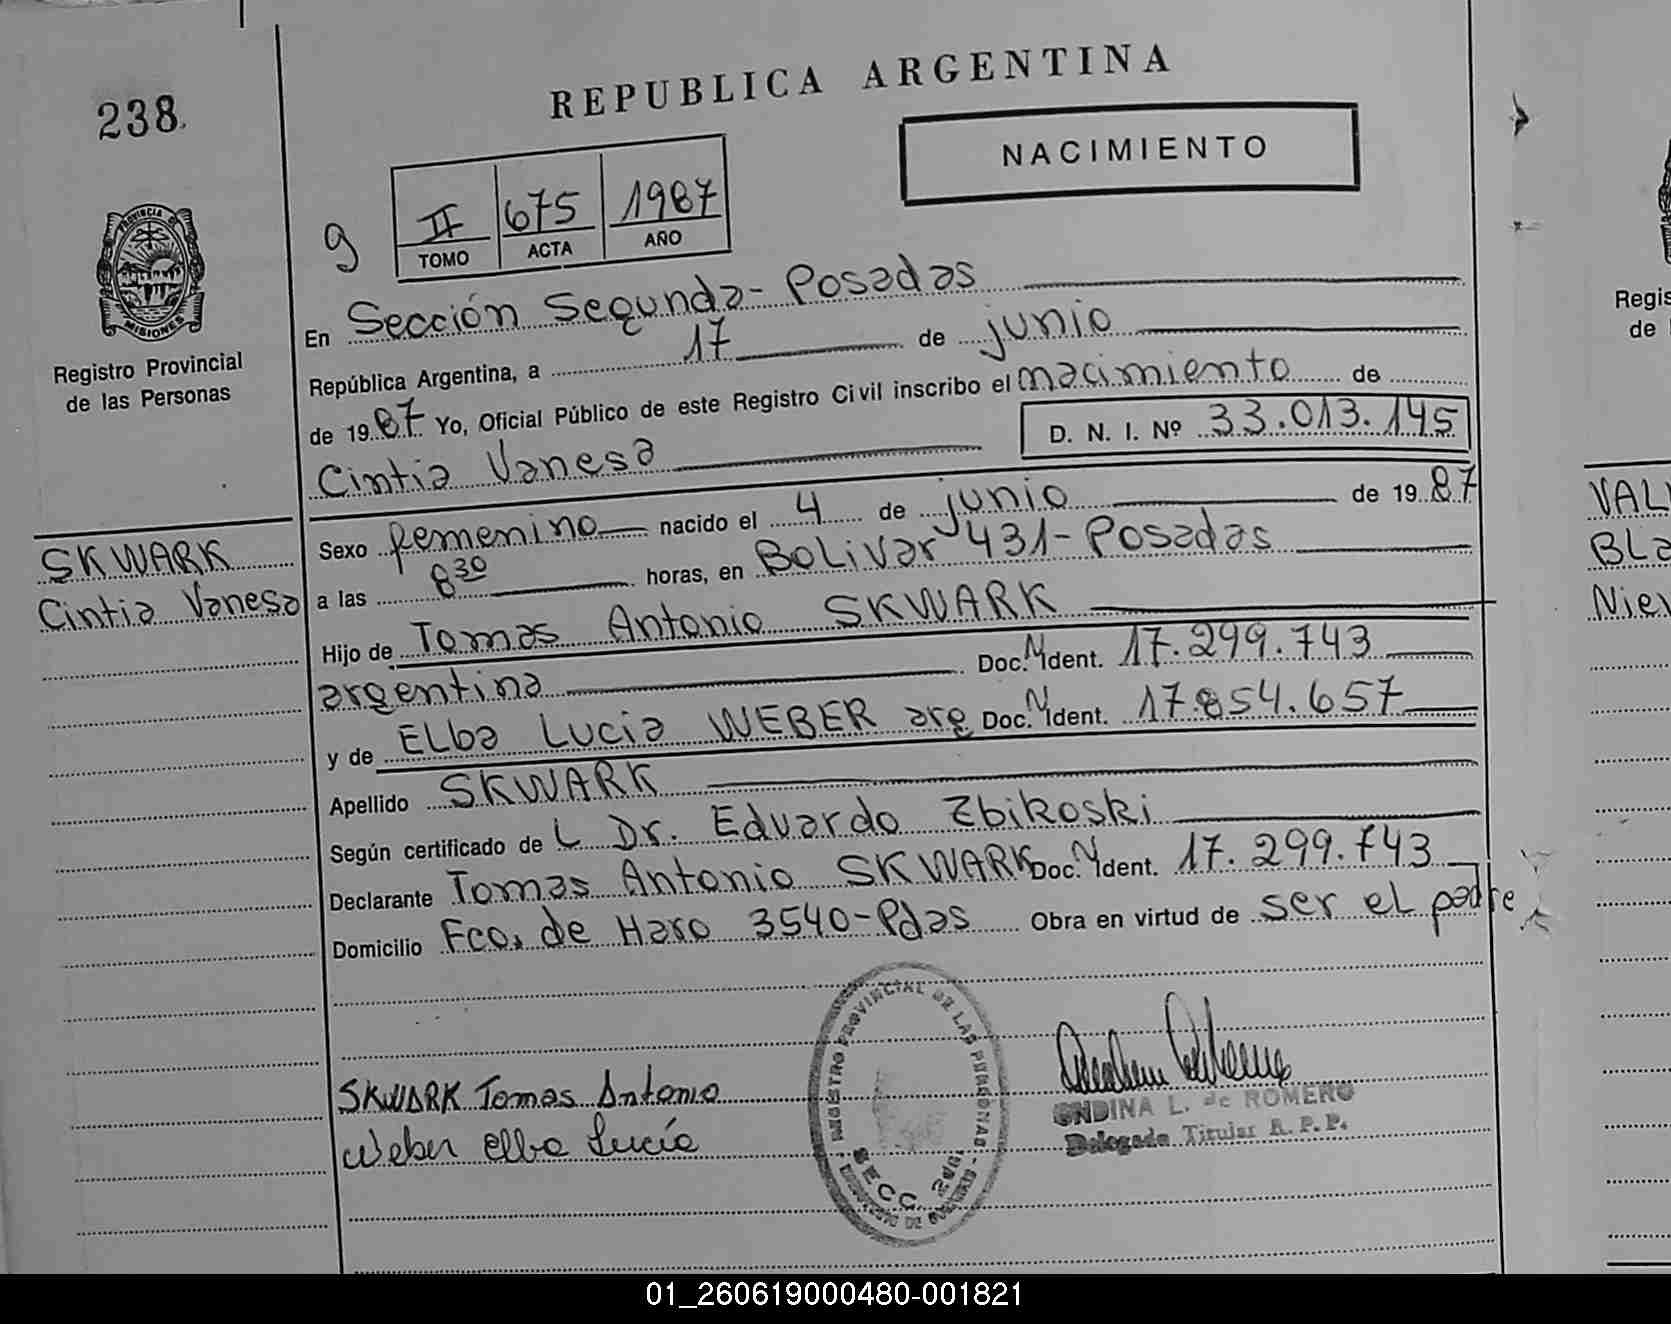 238.
REPUBLICA ARGENTINA
NACIMIENTO
9
II 675 1987
TOMO ACTA AÑO
PROVINCIA DE
MISIONES
Registro Provincial
de las Personas
En Sección Segunda - Posadas
República Argentina, a 17 de junio
de 1987 Yo, Oficial Público de este Registro Civil inscribo el nacimiento de
D. N. I. Nº 33.013.145
Cintia Vanesa
SKWARK
Cintia Vanesa
Sexo femenino nacido el 4 de junio de 1987
a las 8 30 horas, en Bolivar 431 - Posadas
Hijo de Tomas Antonio SKWARK
argentina Doc. N Ident. 17.299.743
y de ELba Lucia WEBER arg Doc. N Ident. 17.854.657
Apellido SKWARK
Según certificado de L Dr. Eduardo Zbikoski
Declarante Tomas Antonio SKWARK Doc. N Ident. 17.299.743
Domicilio Fco. de Haro 3540 - Pdas Obra en virtud de ser el padre
SKWARK Tomas Antonio
Weber Elba Lucía
REGISTRO PROVINCIAL DE LAS PERSONAS
SECC. 2da
ONDINA L. de ROMERO
Delegada Titular R. P. P.
Regis
de
VAL
BLa
Nie
01_260619000480-001821